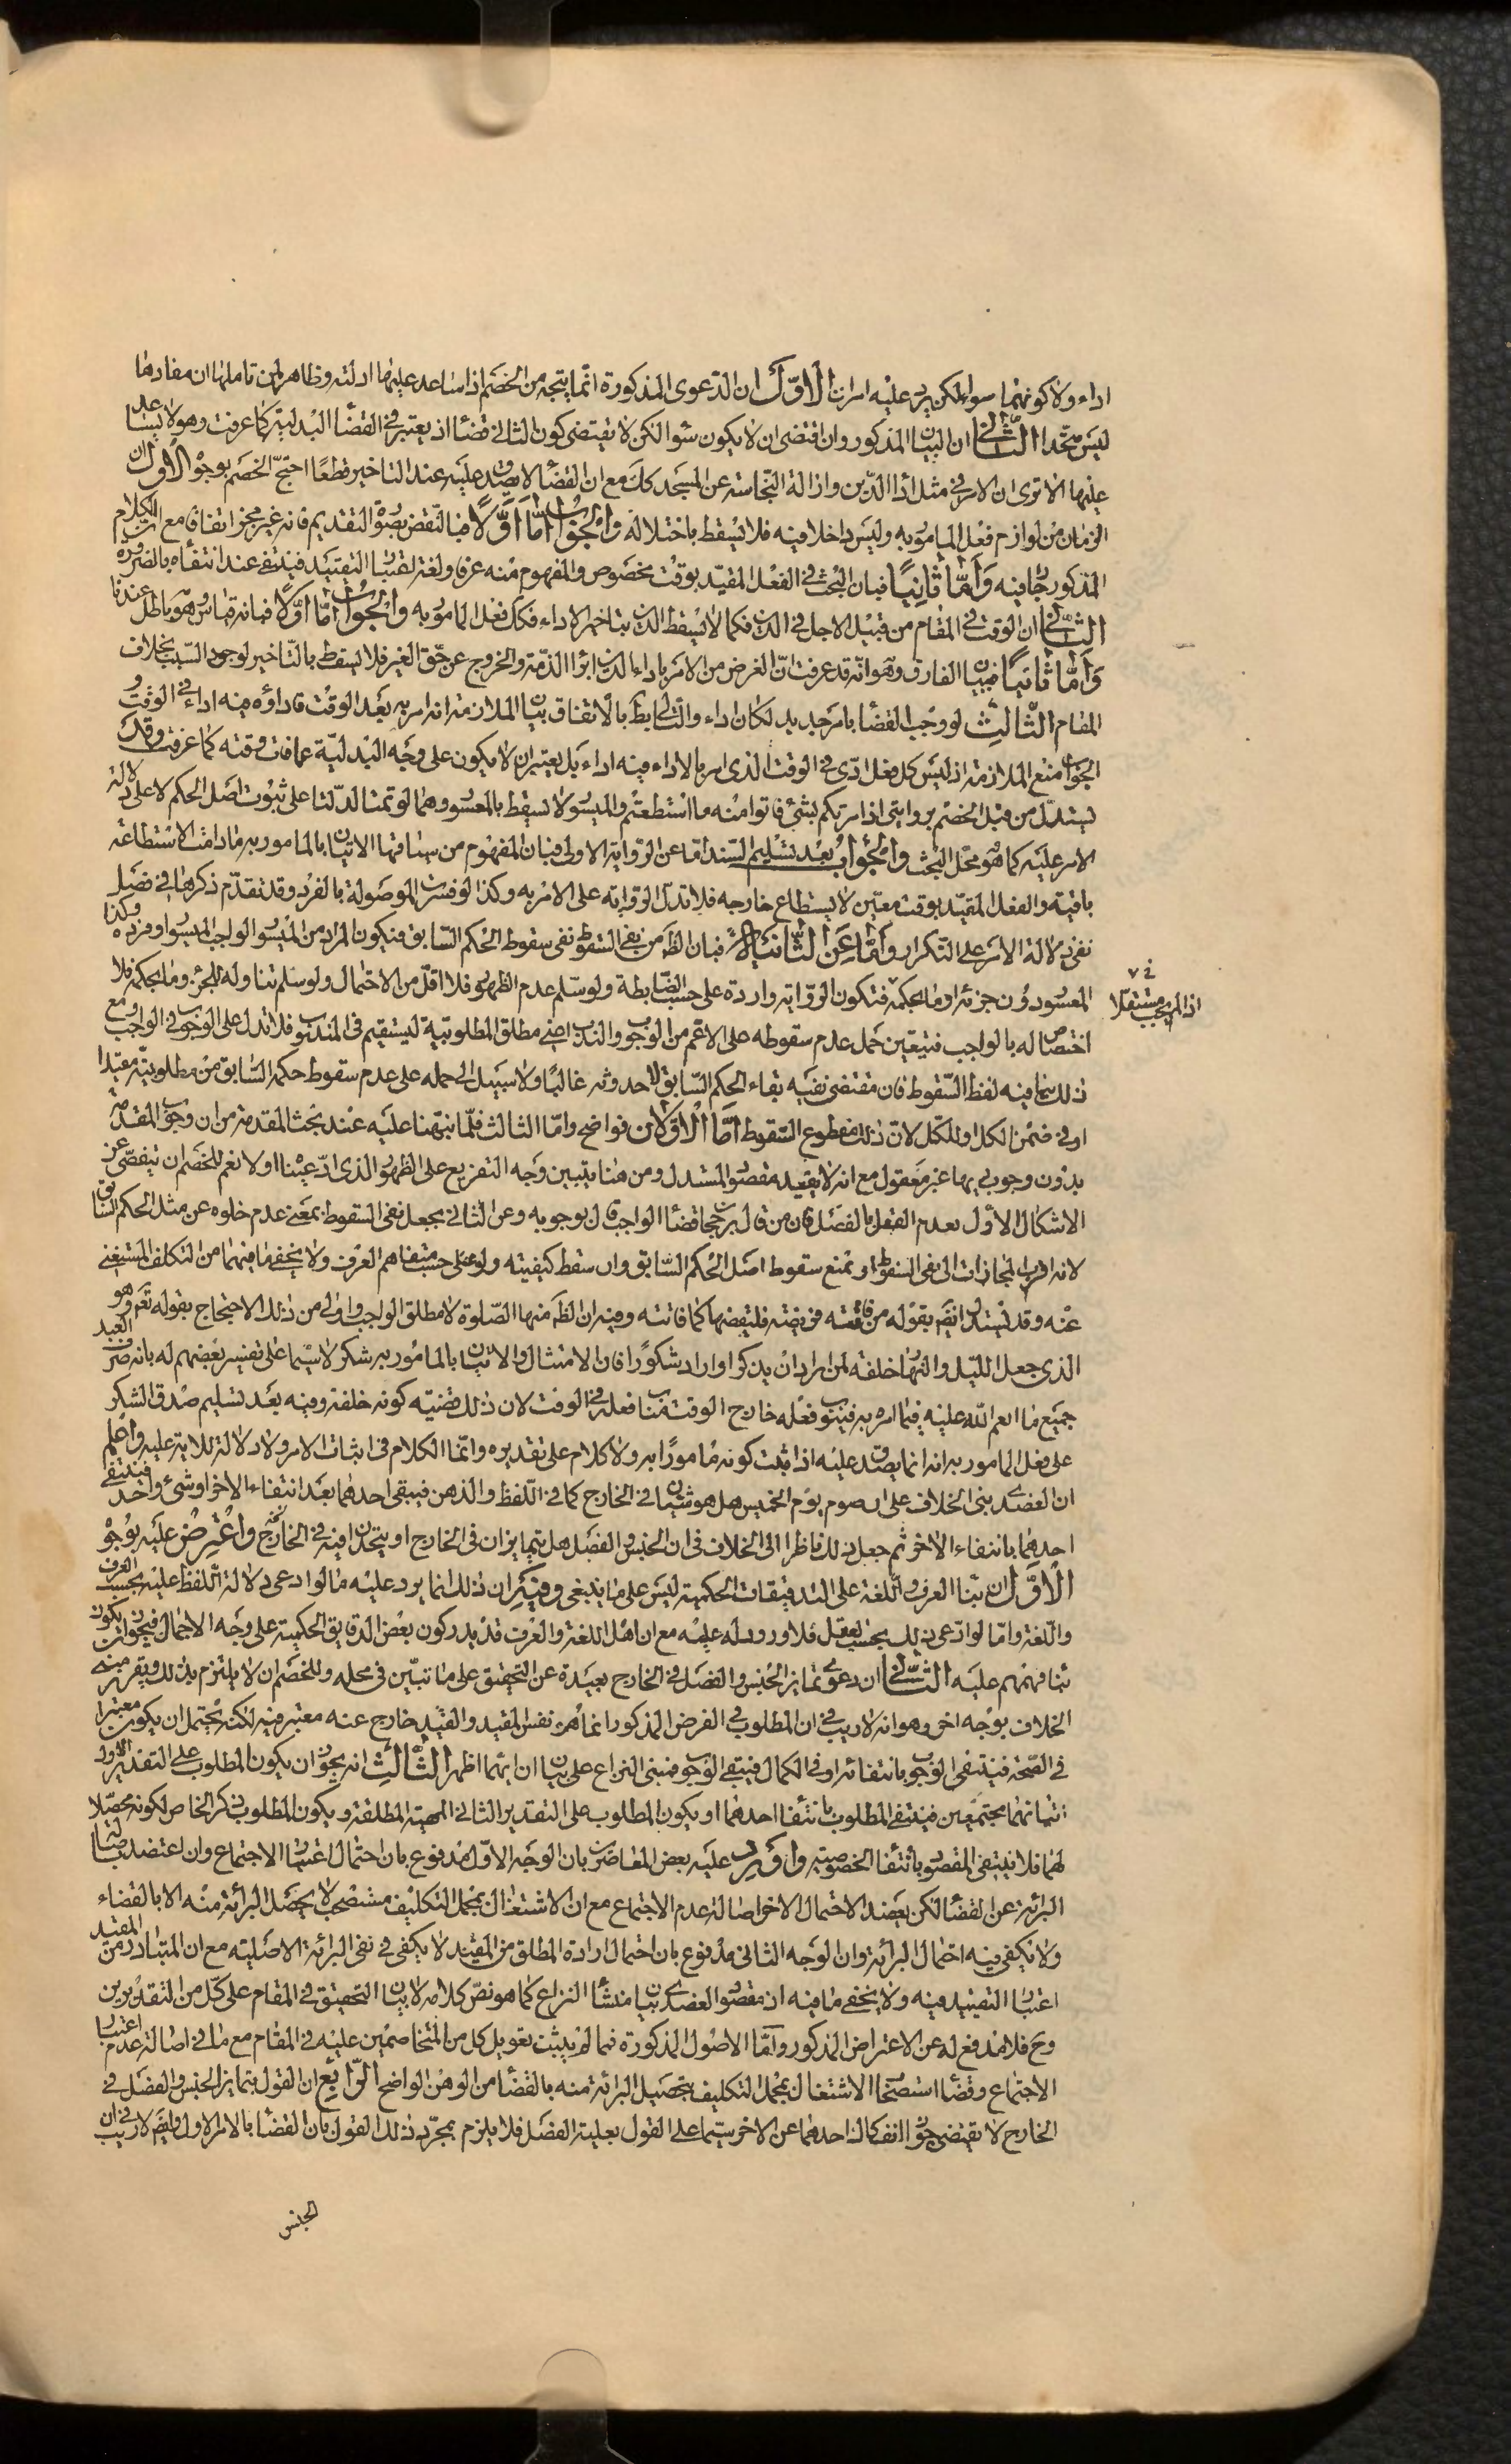 اداء ولا كونهما سواء لكن يرد عليه امران الاوّل ان الدّعوى المذكورة انّما يتجه من الخصم اذا ساعد عليها ادلته وظاهر لمن تاملها ان مفادها
ليس متّحدا الثّاني ان البيان المذكور وان اقتضى ان لا يكون سوا لكن لا يقتضى كون الثانى قضاء اذ يعتبر فى القضاء البدليّة كما عرفت وهو لا يساعد
عليها الا ترى ان الامر فى مثل اداء الدّين وازالة النّجاسة عن المسجد كك مع ان القضاء لا يصدق عليه عند التاخير قطعًا احتجّ الخصم بوجوه الاول ان
الزمان من لوازم فعل المامور به وليس داخلا فيه فلا يسقط باختلاله والجواب امّا اوّلًا فبالنّقض بصورة التقديم فانه غير مجز اتفاقا مع ان الكلام
المذكور جار فيه وامّا ثانيًا فبان البحث فى الفعل المقيّد بوقت مخصوص والمفهوم منه عرفا ولغة اعتبار التقييد فينتفى عند انتفاه بالضرورة
الثّاني ان الوقت فى المقام من قبيل الاجل فى الدين فكما لا يسقط الدين بتاخير الاداء فكك فعل المامور به والجواب امّا اوّلًا فبانه قياس وهو باطل عندنا
وامّا ثانيًا فببيان الفارق وهو انّه قد عرفت انّ الغرض من الامر باداء الدين ابراء الذّمة والخروج عن حقّ الغير فلا يسقط بالتّاخير لوجود السّبب بخلاف
المقام الثّالث لو وجب القضاء بامر جديد لكان اداء والتّالى بط بالاتفاق بيان الملازمة انه امر به بعد الوقت فاداؤه فيه اداء فى الوقت و
الجواب منع الملازمة اذ ليس كل فعل ادّى فى الوقت الذى امر بالاداء فيه اداء بل يعتبر ان لا يكون على وجه البدليّة عما فات وقته كما عرفت وقد
يستدلّ من قبل الخصم بروايتى اذا امرتكم بشئ فاتوا منه ما استطعتم والميسور لا يسقط بالمعسور وهما لو تمتا لدلّتا على ثبوت اصل الحكم لا على دلالة
الامر عليه كما هو محلّ البحث والجواب بعد تسليم السّند امّا عن الرّواية الاولى فبان المفهوم من سياقها الاتيان بالمامور به ما دامت الاستطاعة
باقية والفعل المقيّد بوقت معيّن لا يستطاع خارجه فلا تدلّ الرّواية على الامر به وكذا لو فسرت الموصولة بالفرد وقد تقدّم ذكرها فى فصل
نفى دلالة الامر على التكرار وامّا عن الثّانية فبان الظّ من نفى السّقوط نفى سقوط الحكم السّابق فيكون المراد من الميسور الواجب الميسور او فرده وكذا
المعسور دون جزئه او ما بحكمه فتكون الرّواية واردة على حسب الضّابطة ولو سلّم عدم الظهور فلا اقلّ من الاحتمال ولو سلّم تناوله للجزء وما بحكمه فلا
اذ الم يجب مستقلا
اختصاص له بالواجب فيتعيّن حمل عدم سقوطه على الاعم من الوجوب والندب اعنى مطلق المطلوبيّة ليستقيم فى المندوب فلا تدل على الوجوب فى الواجب ومع
ذلك ينافيه لفظ السّقوط فان مقتضى نفيه بقاء الحكم السّابق لا حدوثه غالبًا ولا سبيل الى حمله على عدم سقوط حكمه السّابق من مطلوبيّته مقيّدا
او فى ضمن الكل او للكل لانّ ذلك مقطوع السّقوط امّا الاوّلان فواضح وامّا الثالث فلما نبّهنا عليه عند بحث المقدمة من ان وجوب المقدّمة
بدون وجوب ذيها غير معقول مع انه لا يفيد مقصود المستدل ومن هنا يتبيّن وجه التفريع على الظهور الذى ادّعيناه اولا نعم للخصم ان يتفصّى عن
الاشكال الأول بعدم القول بالفصل فان من قال برجحان قضاء الواجب قال بوجوبه وعن الثّانى بجعل نفى السقوط بمعنى عدم خلوه عن مثل الحكم السّابق
لانه اقرب المجازات الى نفى السقوط او بمنع سقوط اصل الحكم السّابق وان سقط كيفيته ولو على حسب متفاهم العرف ولا يخفى ما فيهما من التكلّف المستغنى
عنه وقد يستدل ايضًا بقوله من فاتته فريضة فليقضها كما فاتته وفيه ان الظّ منها الصّلوة لا مطلق الواجب واولى من ذلك الاحتجاج بقوله تعم وهو
الذى جعل الليل والنهار خلفة لمن اراد ان يذكر او اراد شكورًا فان الامتثال والاتيان بالمامور به شكر لا سيّما على تفسير بعضهم له بانه صرف العبد
جميع ما انعم اللّه عليه فيما امره به فينوب فعله خارج الوقت مناب فعله فى الوقت لان ذلك قضيّة كونه خلفة وفيه بعد تسليم صدق الشكر
على فعل المامور به انه انما يصدق عليه اذا ثبت كونه مامورًا به ولا كلام على تقديره وانّما الكلام فى اثبات الامر ولا دلالة للاية عليه واعلم
ان العضدى بنى الخلاف على ان صوم يوم الخميس هل هو شيئان فى الخارج كما فى اللّفظ والذهن فيبقى احدهما بعد انتفاء الاخر او شئ واحد فينتفى
احدهما بانتفاء الاخر ثم جعل ذلك ناظرا الى الخلاف فى ان الجنس والفصل هل يتمايزان فى الخارج او يتحدان فيه فى الخارج واعترض عليه بوجوه
الاوّل ان بناء العرف واللّغة على التدقيقات الحكمية ليس على ما ينبغى وفيه ان ذلك انما يرد عليه ما لو ادعى دلالة اللّفظ عليه بحسب العرف
واللّغة وامّا لو ادّعى ذلك بحسب العقل فلا ورود له عليه مع ان اهل اللغة والعرف قد يدركون بعض الدقايق الحكمية على وجه الاجمال فيجوز ان يكون
بناء فهمهم عليه الثّاني ان دعوى تمايز الجنس والفصل فى الخارج بعيدة عن التحقيق على ما تبيّن فى محله وللخصم ان لا يلتزم بذلك ويقرر مبنى
الخلاف بوجه اخر وهو انه لا ريب فى ان المطلوب فى الفرض المذكور انما هو نفس المقيد والقيد خارج عنه معتبر فيه لكنّه يحتمل ان يكون معتبرا
فى الصّحة فينتفى الوجوب بانتفائه او فى الكمال فيبقى الوجوب فمبنى النزاع على بيان ان ايهما اظهر الثّالث انه يجوز ان يكون المطلوب على التقدير الاول
اتيانهما مجتمعين فينتفى المطلوب بانتفاء احدهما او يكون المطلوب على التقدير الثانى المهيّة المطلقة ويكون المطلوب ذكر الخاص لكونه محصّلا
لها فلا ينتفى المقصود بانتفاء الخصوصيّة واورد عليه بعض المعاصرين بان الوجه الاوّل مدفوع بان احتمال اعتبار الاجتماع وان اعتضد باصالة
البرائة عن القضاء لكن يعضد الاحتمال الاخر اصالة عدم الاجتماع مع ان الاشتغال بمجمل التكليف مستصحب لا يحصل البرائة منه الا بالقضاء
ولا يكفى فيه احتمال البرائة وان الوجه الثانى مدفوع بان احتمال ارادة المطلق من المقيّد لا يكفى فى نفى البرائة الاصليّة مع ان المتبادر من المقيد
اعتبار التقييد فيه ولا يخفى ما فيه اذ مقصود العضدى بيان منشأ النزاع كما هو نصّ كلامه لا بيان التحقيق فى المقام على كلّ من التقديرين
وح فلا مدفع له عن الاعتراض المذكور وامّا الاصول المذكورة فمما لم يثبت تعويل كل من المتخاصمين عليه فى المقام مع ما فى اصالة عدم اعتبار
الاجتماع وقضاء استصحاب الاشتغال بمجمل التكليف بتحصيل البرائة منه بالقضاء من الوهن الواضح الرّابع ان القول بتمايز الجنس والفصل فى
الخارج لا يقتضى جواز انفكاك احدهما عن الاخر سيّما على القول بعلية الفصل فلا يلزم بمجرّد ذلك القول بان القضاء بالامر الاول وايضًا لا ريب فى ان
الجنس